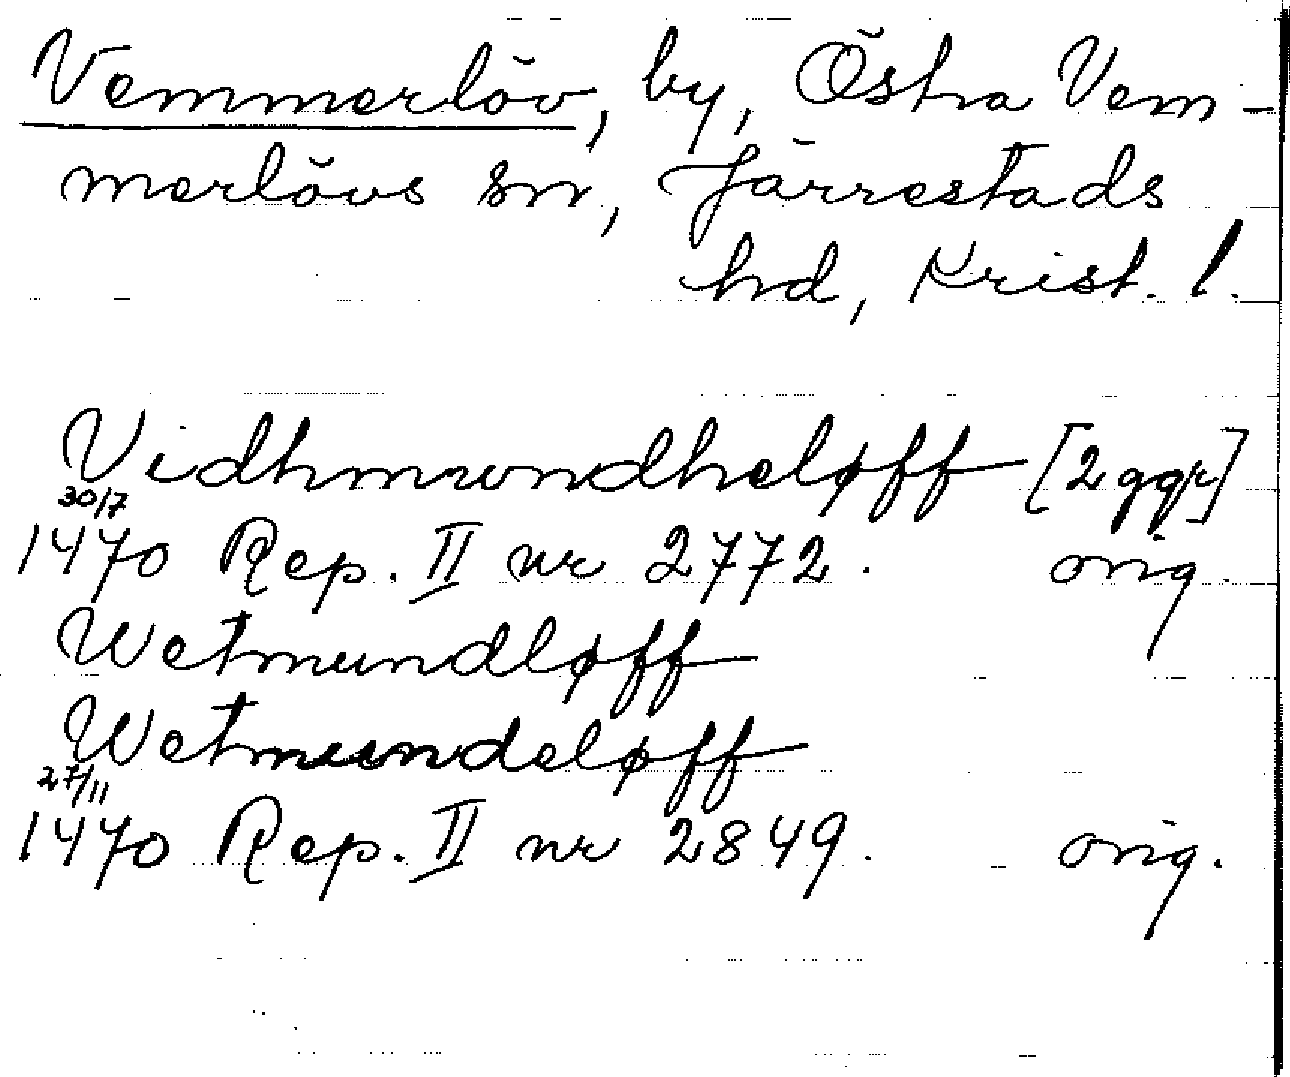 Vemmerlöv, by, Östra Vem-
merlövs sn, Järrestads
hd, Krist. l.
Vidhmundheløff [2 ggr]
30/7
1470 Rep. II nr 2772. orig.
Wetmundløff
Wetmundeløff
27/11
1470 Rep. II nr 2849. orig.